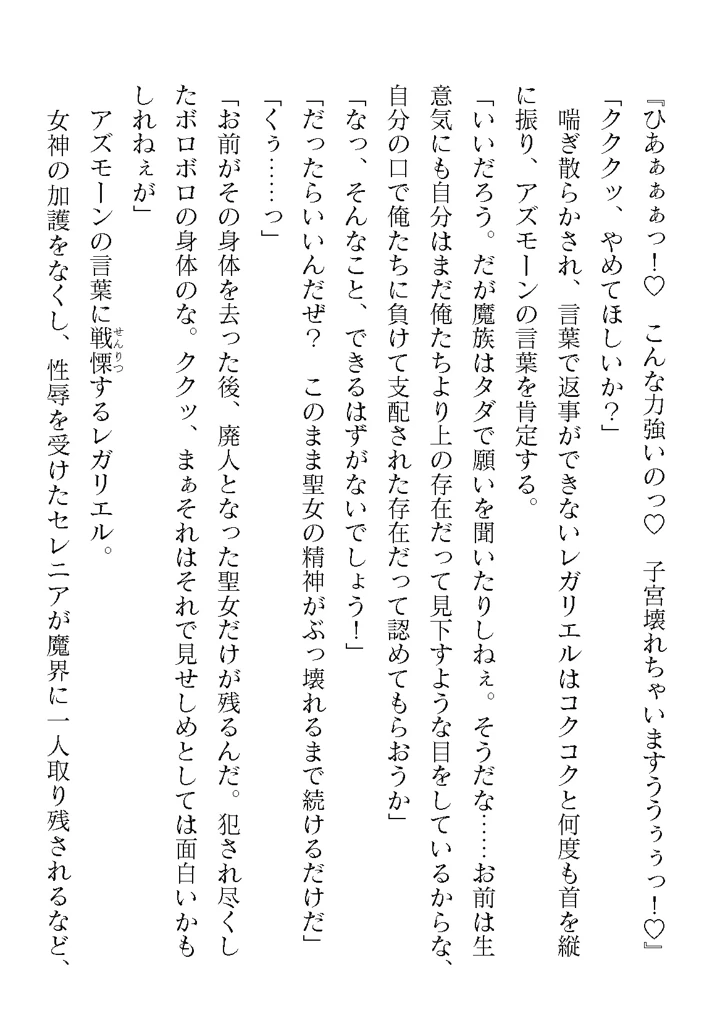 『ひあぁぁぁっ！♡　こんな力強いのっ♡　子宮壊れちゃいますうぅぅぅっ！♡』
「クククッ、やめてほしいか？」
　喘ぎ散らかされ、言葉で返事ができないレガリエルはコクコクと何度も首を縦
に振り、アズモーンの言葉を肯定する。
「いいだろう。だが魔族はタダで願いを聞いたりしねぇ。そうだな……お前は生
意気にも自分はまだ俺たちより上の存在だって見下すような目をしているからな、
自分の口で俺たちに負けて支配された存在だって認めてもらおうか」
「なっ、そんなこと、できるはずがないでしょう！」
「だったらいいんだぜ？　このまま聖女の精神がぶっ壊れるまで続けるだけだ」
「くぅ……っ」
「お前がその身体を去った後、廃人となった聖女だけが残るんだ。犯され尽くし
たボロボロの身体のな。ククッ、まぁそれはそれで見せしめとしては面白いかも
しれねぇが」
　アズモーンの言葉に戦慄せんりつするレガリエル。
　女神の加護をなくし、性辱を受けたセレニアが魔界に一人取り残されるなど、